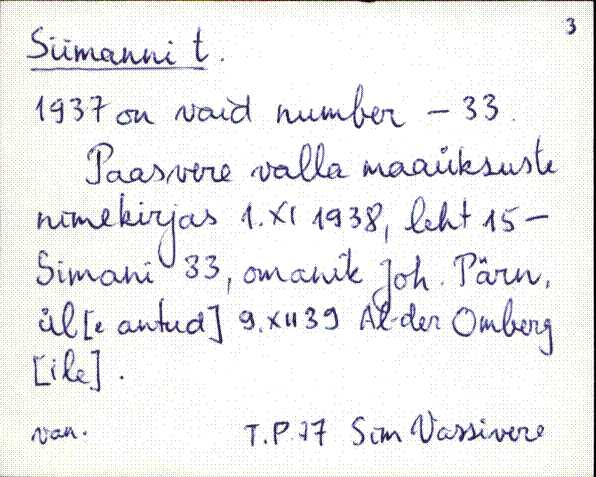 3
Siimanni t.
1937 on vaid number - 33.
Paasvere valla maaüksuste
nimekirjas 1.XI 1938, leht 15 -
Simani 33, omanik Joh. Pärn,
ül[e antud] 9.XII 39 Al-der Omberg
[ile].
van. T.P. 77 Sim Vassivere